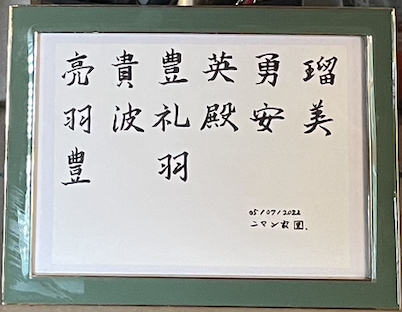 瑠美
勇安
英殿
豊礼羽
貴波
亮羽豊
05/07/2022
ニマン牧園、